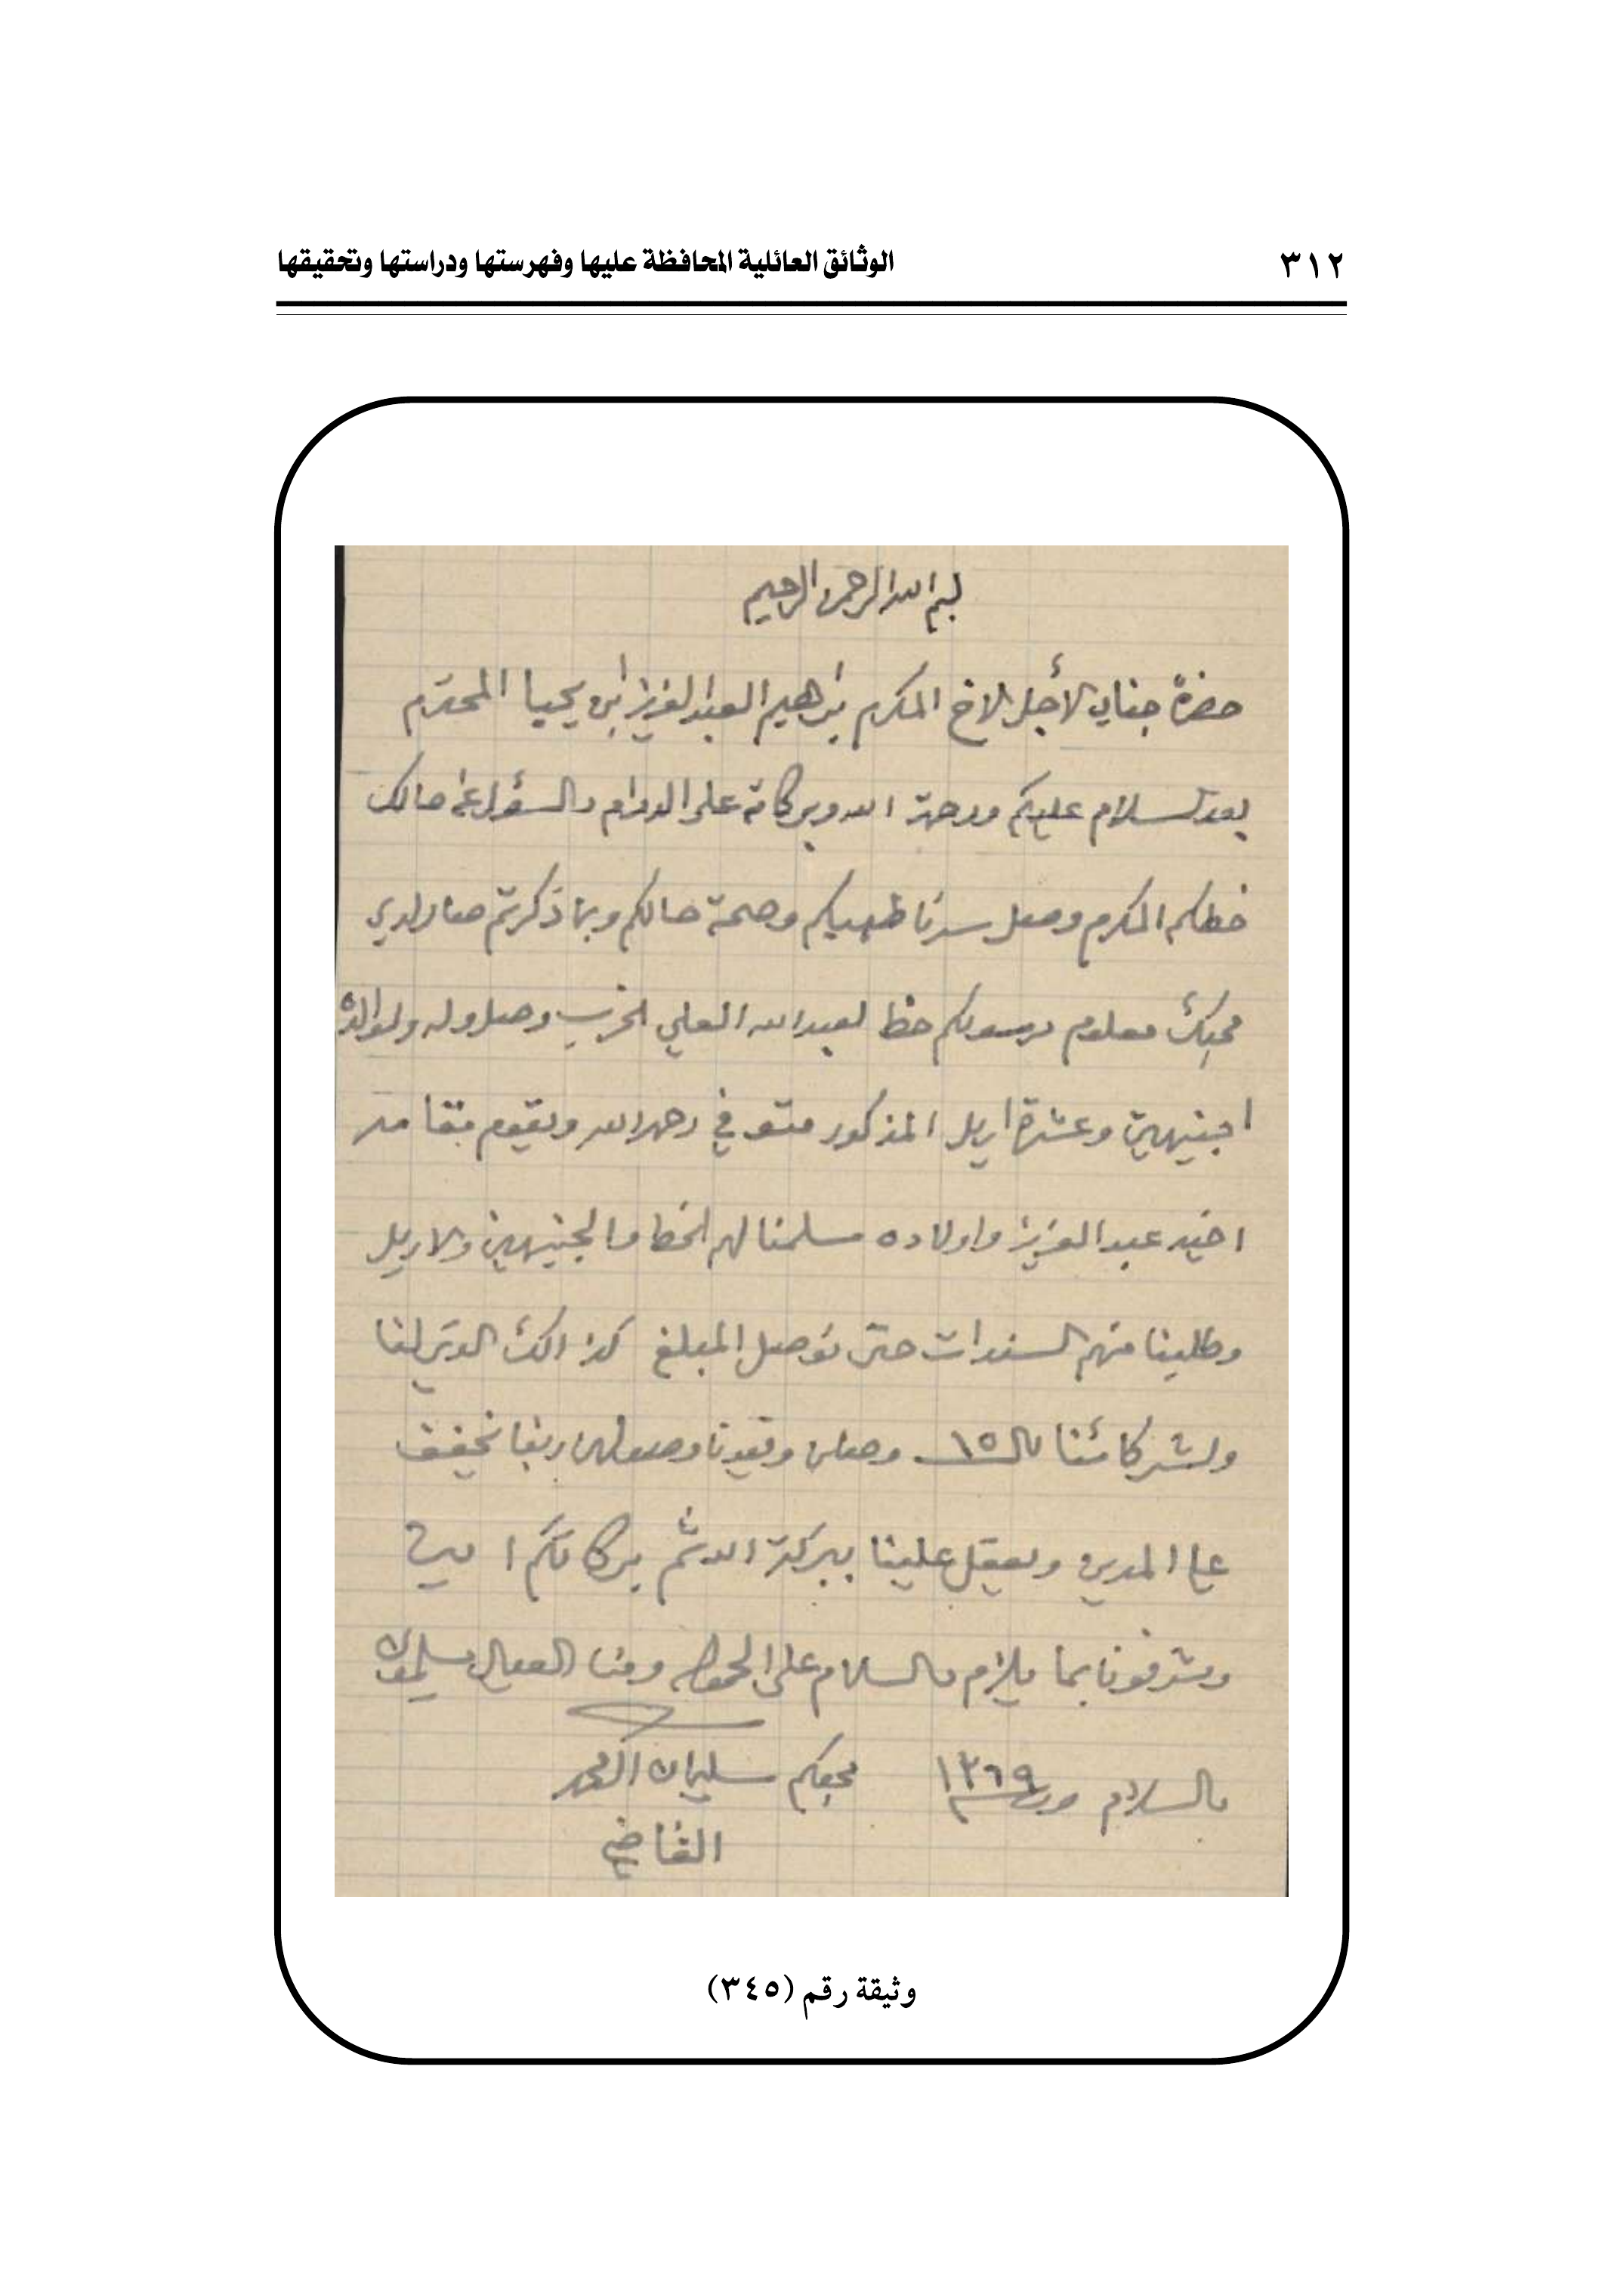 ٣١٢
الوثائق العائلية المحافظة عليها وفهرستها ودراستها وتحقيقها
بسم الله الرحمن الرحيم
حضرة جناب الأجل الاخ المكرم براهيم العبدالعزيز ابن يحيا المحترم
بعد السلام عليكم ورحمة الله وبركاته على الدوام والسؤل عن حالك
خطكم المكرم وصل سرنا طيبكم وصحة حالكم وبما ذكرتم صار لدي
محبك معلوم مرسولكم خط لعبدالله العلي الخرب وصل وله ولوالده
اجنيهين وعشرة اريل المذكور متوفي رحمه الله ويقوم بمقامه
اخيه عبدالعزيز واولاده سلمنا لهم الخط والجنيهين والاريل
وطلبنا منهم السندات حتى نوصل المبلغ كذالك الذي لنا
ولشركائنا الـ ١٥ وصلن وقيدنا وصولهن ربنا يخفف
على المدين ويقبل علينا ببركة الله ثم بركاتكم امين
وشرفونا بما يلزم والسلام على ومنا العيال يسلمون
والسلام ١٣٦٩ محبكم سليمان المحمد
القاضي
وثيقة رقم (٣٤٥)